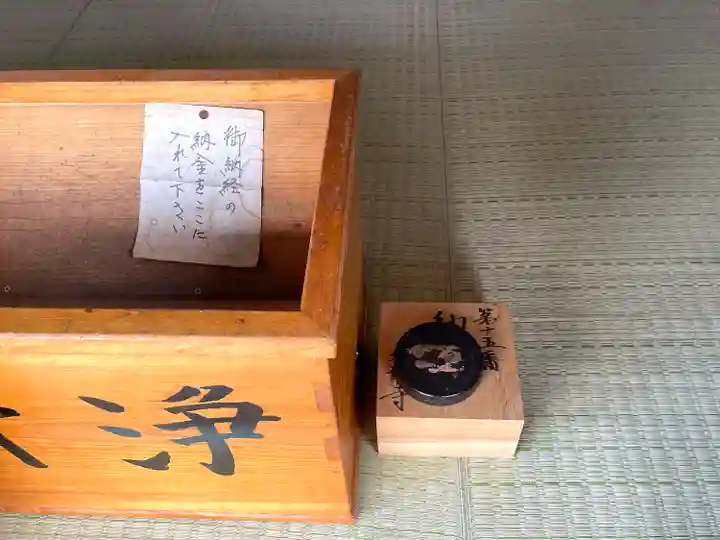 御納経の
納金をここに
入れて下さい
浄
第十五番
納
寺